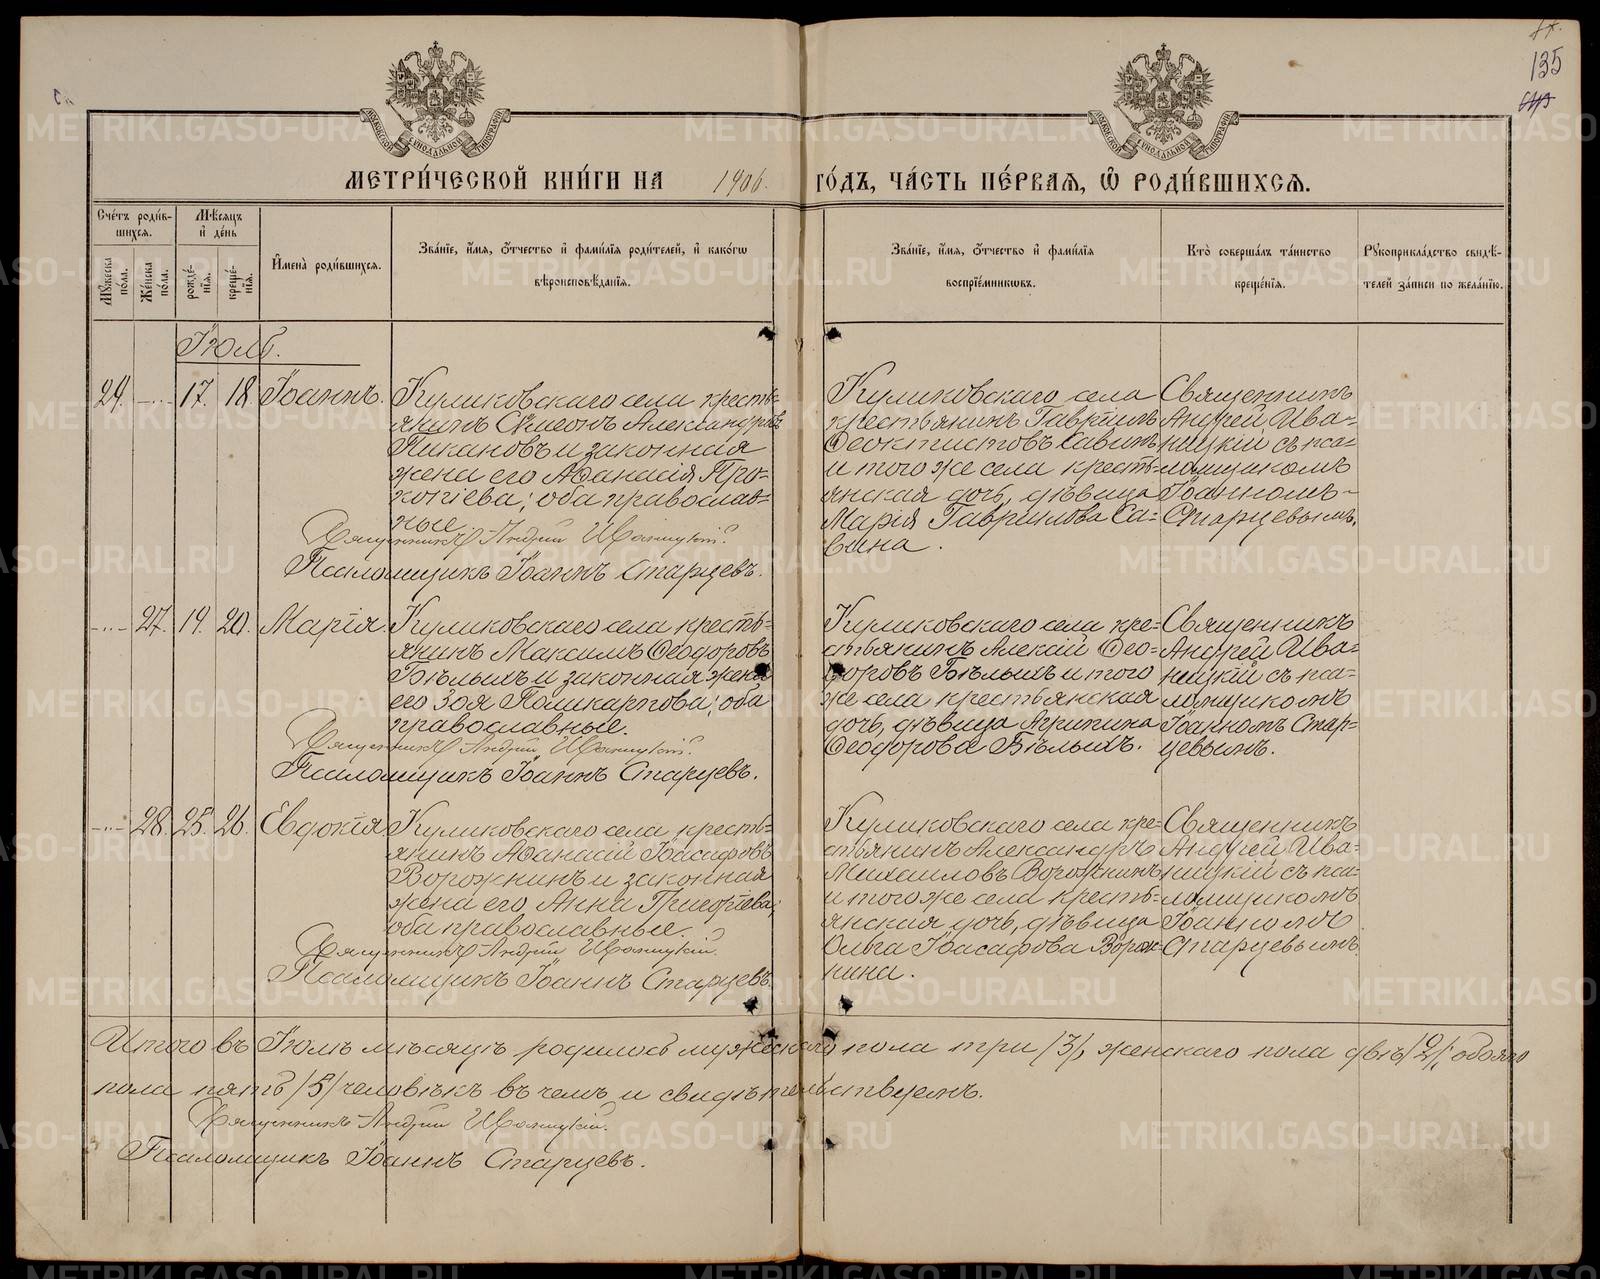 135
МЕТРИ́ЧЕСКОЙ КНИ́ГИ НА 1906. ГО́ДЪ, ЧА́СТЬ ПЕ́РВАЯ, Ѡ҆ РОДИ́ВШИХСЯ.
Сче́тъ роди́в-
шихся.
Му́жеска по́ла.
Же́нска по́ла.
Мѣ́сяцъ
и҆ де́нь
рожде́-
нїя.
креще́-
нїя.
И҆мена̀ роди́вшихся.
Зва́нїе, и҆́мя, ѻ҆́тчество и҆ фами́лїя роди́телей, и҆ како́гѡ
вѣроисповѣ́данїя.
Зва́нїе, и҆́мя, ѻ҆́тчество и҆ фами́лїя
воспрїе́мникѡвъ.
Кто̀ соверша́лъ та́инство
креще́нїя.
Рꙋкоприкла́дство свидѣ́-
телей за́писи по жела́нїю.
Іюль.
24. 17. 18. Іоаннъ.
Куликовскаго села кресть-
янинъ Сѵмеонъ Александровъ
Пикановъ и законная
жена его Аѳанасія Про-
копіева; оба православ-
ные.
Священникъ Андрей Иваницкій.
Псаломщикъ Іоаннъ Старцевъ.
Куликовскаго села
крестьянинъ Гавріилъ
Ѳеоктистовъ Савинъ
и того же села кресть-
янская дочь, дѣвица
Марія Гавриилова Са-
вина.
Священникъ
Андрей Ива-
ницкій съ пса-
ломщикомъ
Іоанномъ
Старцевымъ.
27. 19. 20. Марія.
Куликовскаго села кресть-
янинъ Максимъ Ѳеодоровъ
Бѣлыхъ и законная жена
его Зоя Поликарпова; оба
православные.
Священникъ Андрей Иваницкій.
Псаломщикъ Іоаннъ Старцевъ.
Куликовскаго села кре-
стьянинъ Алексій Ѳео-
доровъ Бѣлыхъ и того
же села крестьянская
дочь, дѣвица Агрипина
Ѳеодорова Бѣлыхъ.
Священникъ
Андрей Ива-
ницкій съ пса-
ломщикомъ
Іоанномъ Стар-
цевымъ.
28. 25. 26. Евдокія
Куликовскаго села кресть-
янинъ Аѳанасій Іоасафовъ
Ворожнинъ и законная
жена его Анна Григоріева;
оба православные.
Священникъ Андрей Иваницкій.
Псаломщикъ Іоаннъ Старцевъ.
Куликовскаго села кре-
стьянинъ Александръ
Михаиловъ Ворожнинъ
и того же села кресть-
янская дочь, дѣвица
Ольга Іоасафова Ворож-
нина.
Священникъ
Андрей Ива-
ницкій съ пса-
ломщикомъ
Іоанномъ
Старцевымъ.
Итого въ Іюлѣ мѣсяцѣ родилось мужескаго пола три /3/, женскаго пола двѣ /2/; обоего
пола пять /5/ человѣкъ въ чемъ и свидѣтельствуемъ.
Священникъ Андрей Иваницкій.
Псаломщикъ Іоаннъ Старцевъ.
METRIKI.GASO-URAL.RU